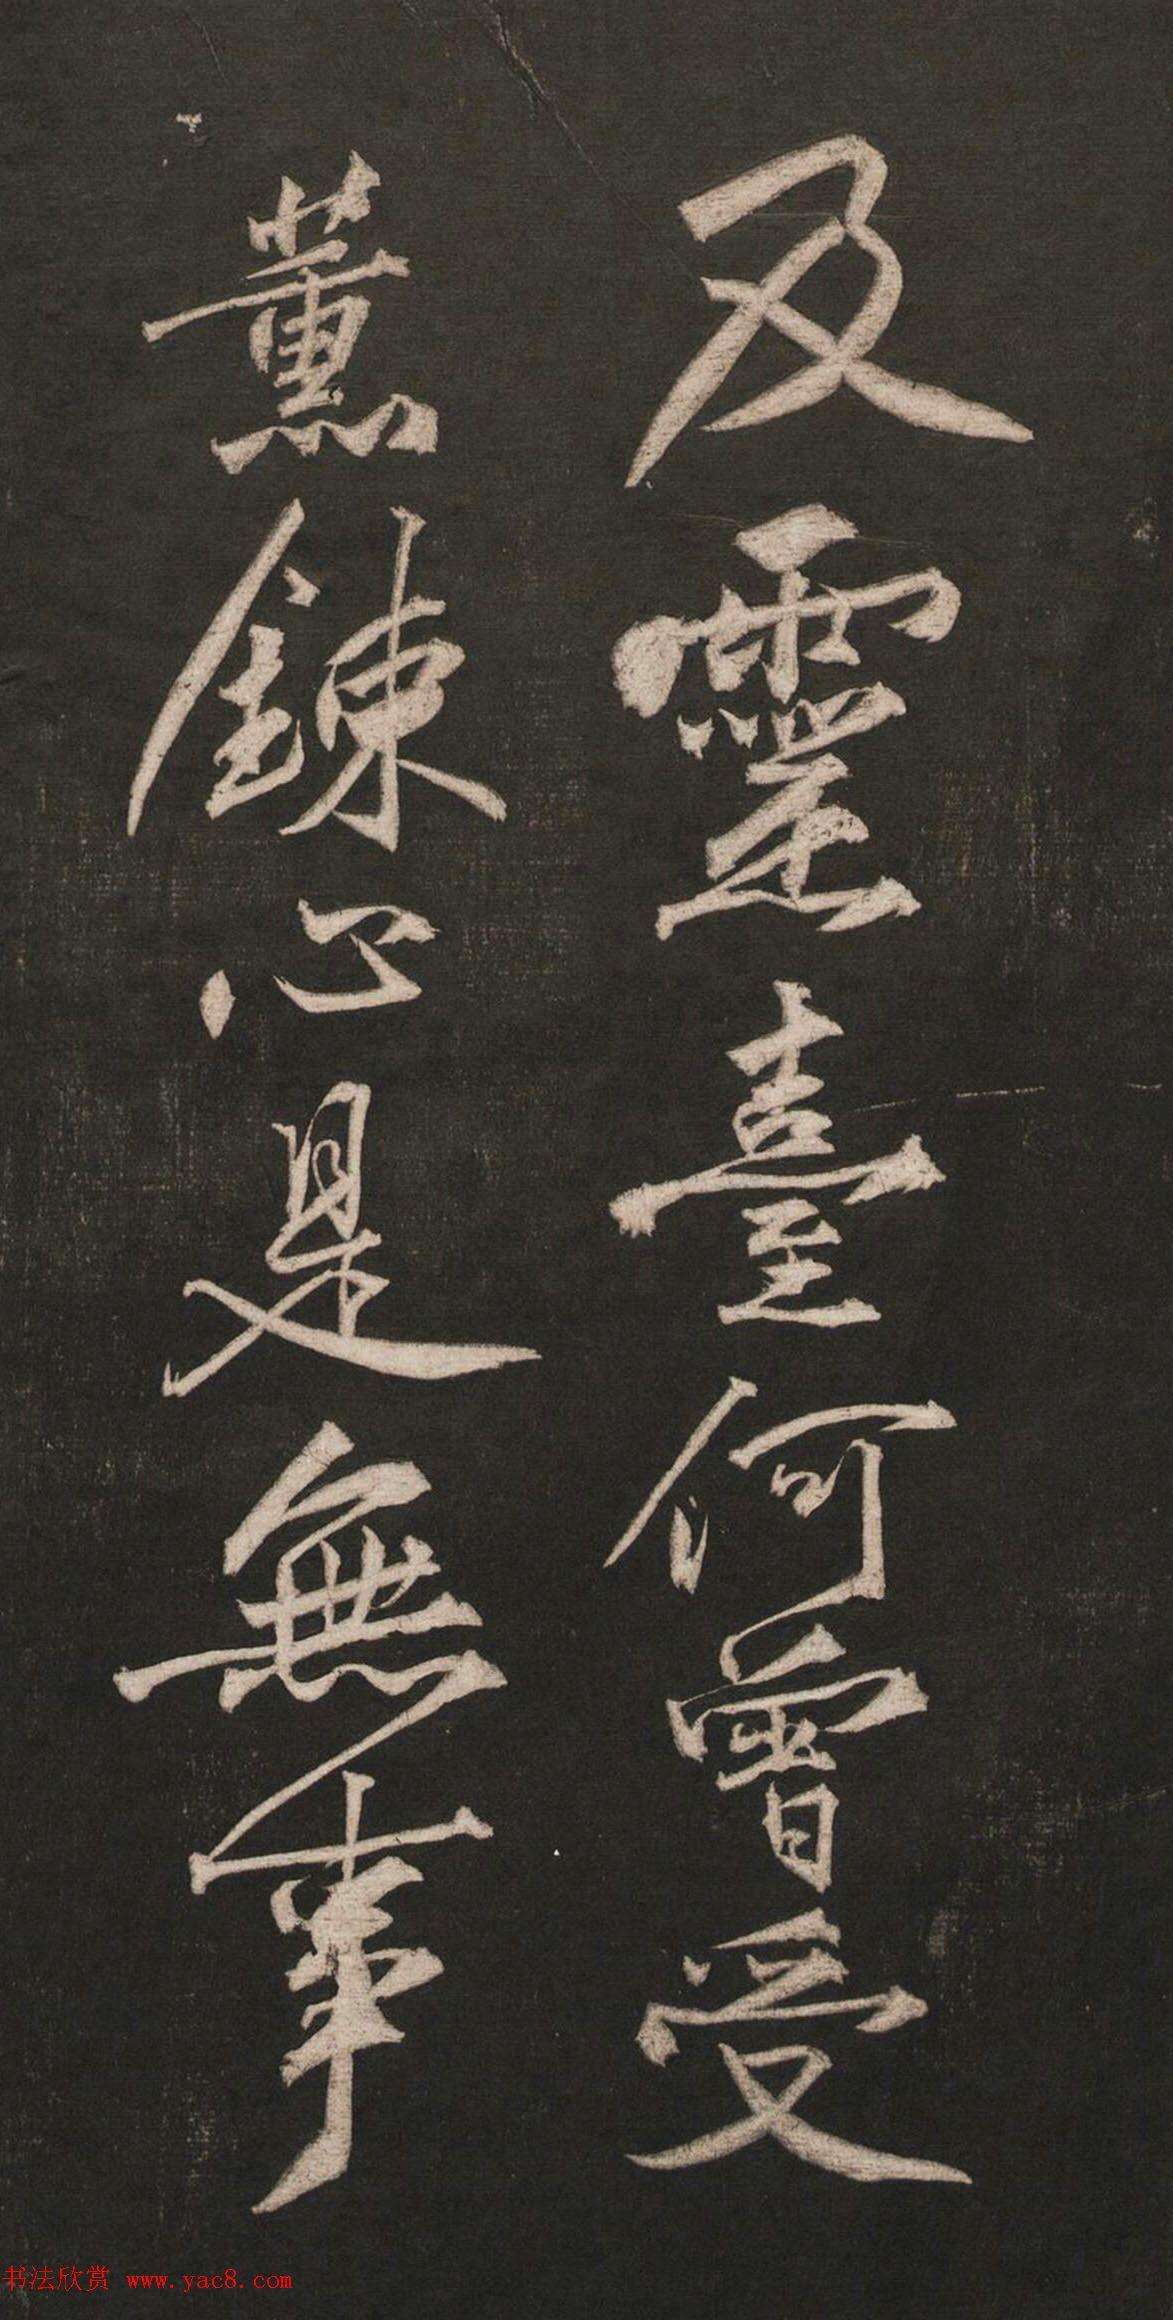 及靈臺何曾受
薰鍊心是無事
书法欣赏 www.yac8.com